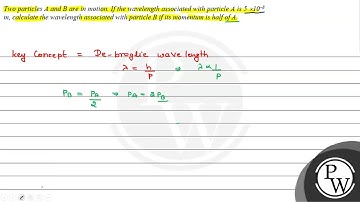 Two particles A and B are in motion. If the wavelength associated with particle A is 5 ×10⁻⁸
m, calculate the wavelength associated with particle B if its momentum is half of A.
Key Concept = De-broglie wave length
λ = h/P ⇒ λ ∝ 1/P
PB = PA/2 ⇒ PA = 2PB
PW